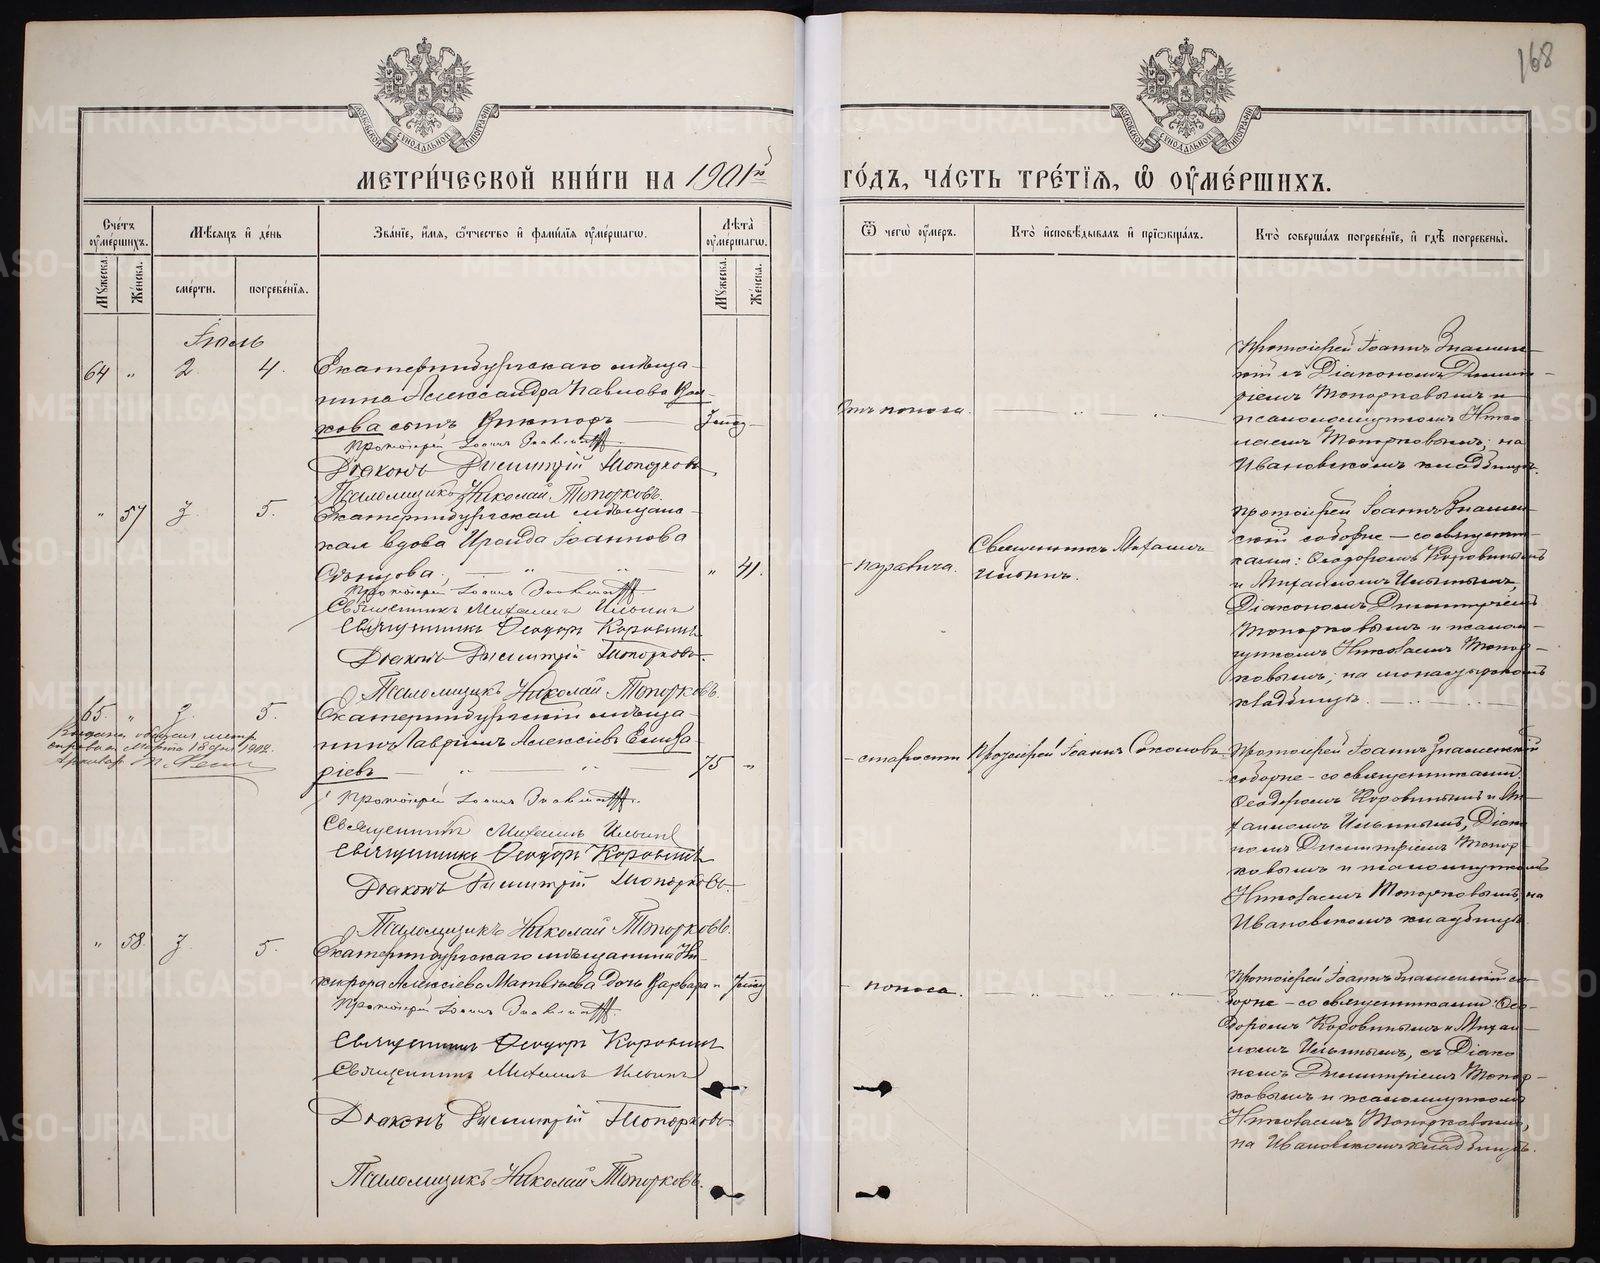 168
МОСКОВСКОЙ СѴНОДАЛЬНОЙ ТИПОГРАФІИ
МОСКОВСКОЙ СѴНОДАЛЬНОЙ ТИПОГРАФІИ
МЕТРИ́ЧЕСКОЙ КНИ́ГИ НА 1901й ГО́ДЪ, ЧА́СТЬ ТРЕ́ТІѦ, Ѡ҆ ОУ҆МЕ́РШИХЪ.
Сче́тъ оу҆ме́ршихъ.
Мꙋ́жеска.
Же́нска.
Мѣ́сѧцъ и҆ де́нь
сме́рти.
погребе́нїѧ.
Зва́нїе, и҆́мѧ, ѻ҆́тчество и҆ фами́лїѧ оу҆ме́ршагѡ.
Лѣ́та оу҆ме́ршагѡ.
Мꙋ́жеска.
Же́нска.
Ѿ чегѡ̀ оу҆́меръ.
Кто̀ и҆сповѣ́дывалъ и҆ прїѡбща́лъ.
Кто̀ соверша́лъ погребе́нїе, и҆ гдѣ̀ погребены̀.
Іюль
64 " 2. 4.
Екатеринбургскаго мѣща-
нина Александра Павлова
кова сынъ Викторъ
Протоіерей Іоаннъ Знаменскій
Діаконъ Димитрій Топорковъ
Псаломщикъ Николай Топорковъ.
Отъ поноса.
Протоіерей Іоаннъ Знамен-
скій съ Діакономъ Димит-
ріемъ Топорковымъ и
псаломщикомъ Нико-
лаемъ Топорковымъ; на
Ивановскомъ кладбищѣ.
" 57 3. 5.
Екатеринбургская мѣщанс-
кая вдова Ираида Іоаннова
" 41.
Протоіерей Іоаннъ Знаменскій
Священникъ Михаилъ Ильинъ
Священникъ Ѳеодоръ Коровинъ
Діаконъ Димитрій Топорковъ.
Псаломщикъ Николай Топорковъ.
- паралича.
Священникъ Михаилъ
Ильинъ.
Протоіерей Іоаннъ Знамен-
скій соборне - со священни-
ками: Ѳеодоромъ Коровинымъ
и Михаиломъ Ильинымъ,
Діакономъ Димитріемъ
Топорковымъ и псалом-
щикомъ Николаемъ Топор-
ковымъ; на монастырскомъ
кладбищѣ.
65. " 3. 5.
Выдана
справка Марта 18 дня 1902.
Архивар
Екатеринбургскій мѣща-
нинъ Лаврентій Алексіевъ Елиза-
ріевъ
75 "
Протоіерей Іоаннъ Знаменскій
Священникъ Михаилъ Ильинъ
Священникъ Ѳеодоръ Коровинъ
Діаконъ Димитрій Топорковъ.
Псаломщикъ Николай Топорковъ.
- старости
Протоіерей Іоаннъ Соколовъ
Протоіерей Іоаннъ Знаменскій
соборне - со священниками
Ѳеодоромъ Коровинымъ и Ми-
хаиломъ Ильинымъ, Діако-
номъ Димитріемъ Топор-
ковымъ и псаломщикомъ
Николаемъ Топорковымъ, на
Ивановскомъ кладбищѣ.
" 58. 3. 5.
Екатеринбургскаго мѣщанина Ни-
кифора Алексіева Матвѣева дочь Варвара
Протоіерей Іоаннъ Знаменскій
Священникъ Ѳеодоръ Коровинъ
Священникъ Михаилъ Ильинъ
Діаконъ Димитрій Топорковъ
Псаломщикъ Николай Топорковъ.
- поноса.
Протоіерей Іоаннъ Знаменскій со-
борне - со священниками Ѳео-
доромъ Коровинымъ и Михаи-
ломъ Ильинымъ, съ Діако-
номъ Димитріемъ Топор-
ковымъ и псаломщикомъ
Николаемъ Топорковымъ,
на Ивановскомъ кладбищѣ.
METRIKI.GASO-URAL.RU